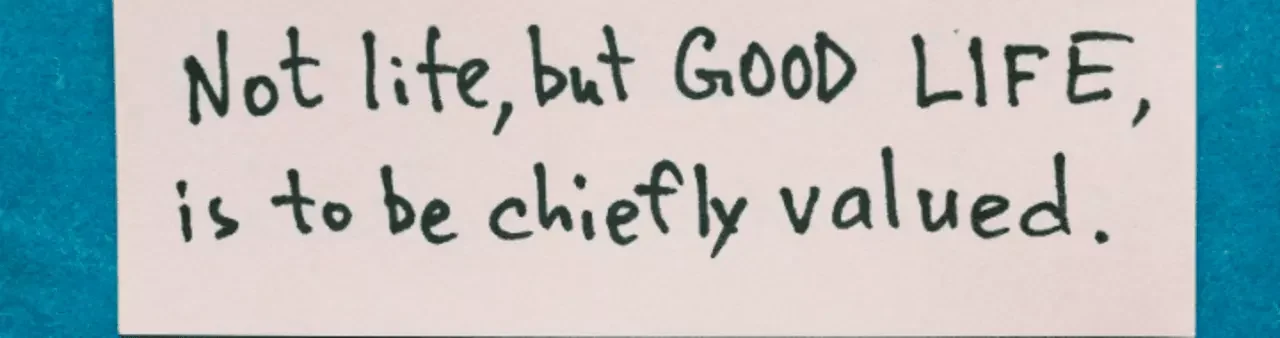 Not life, but GOOD LIFE,
is to be chiefly valued.